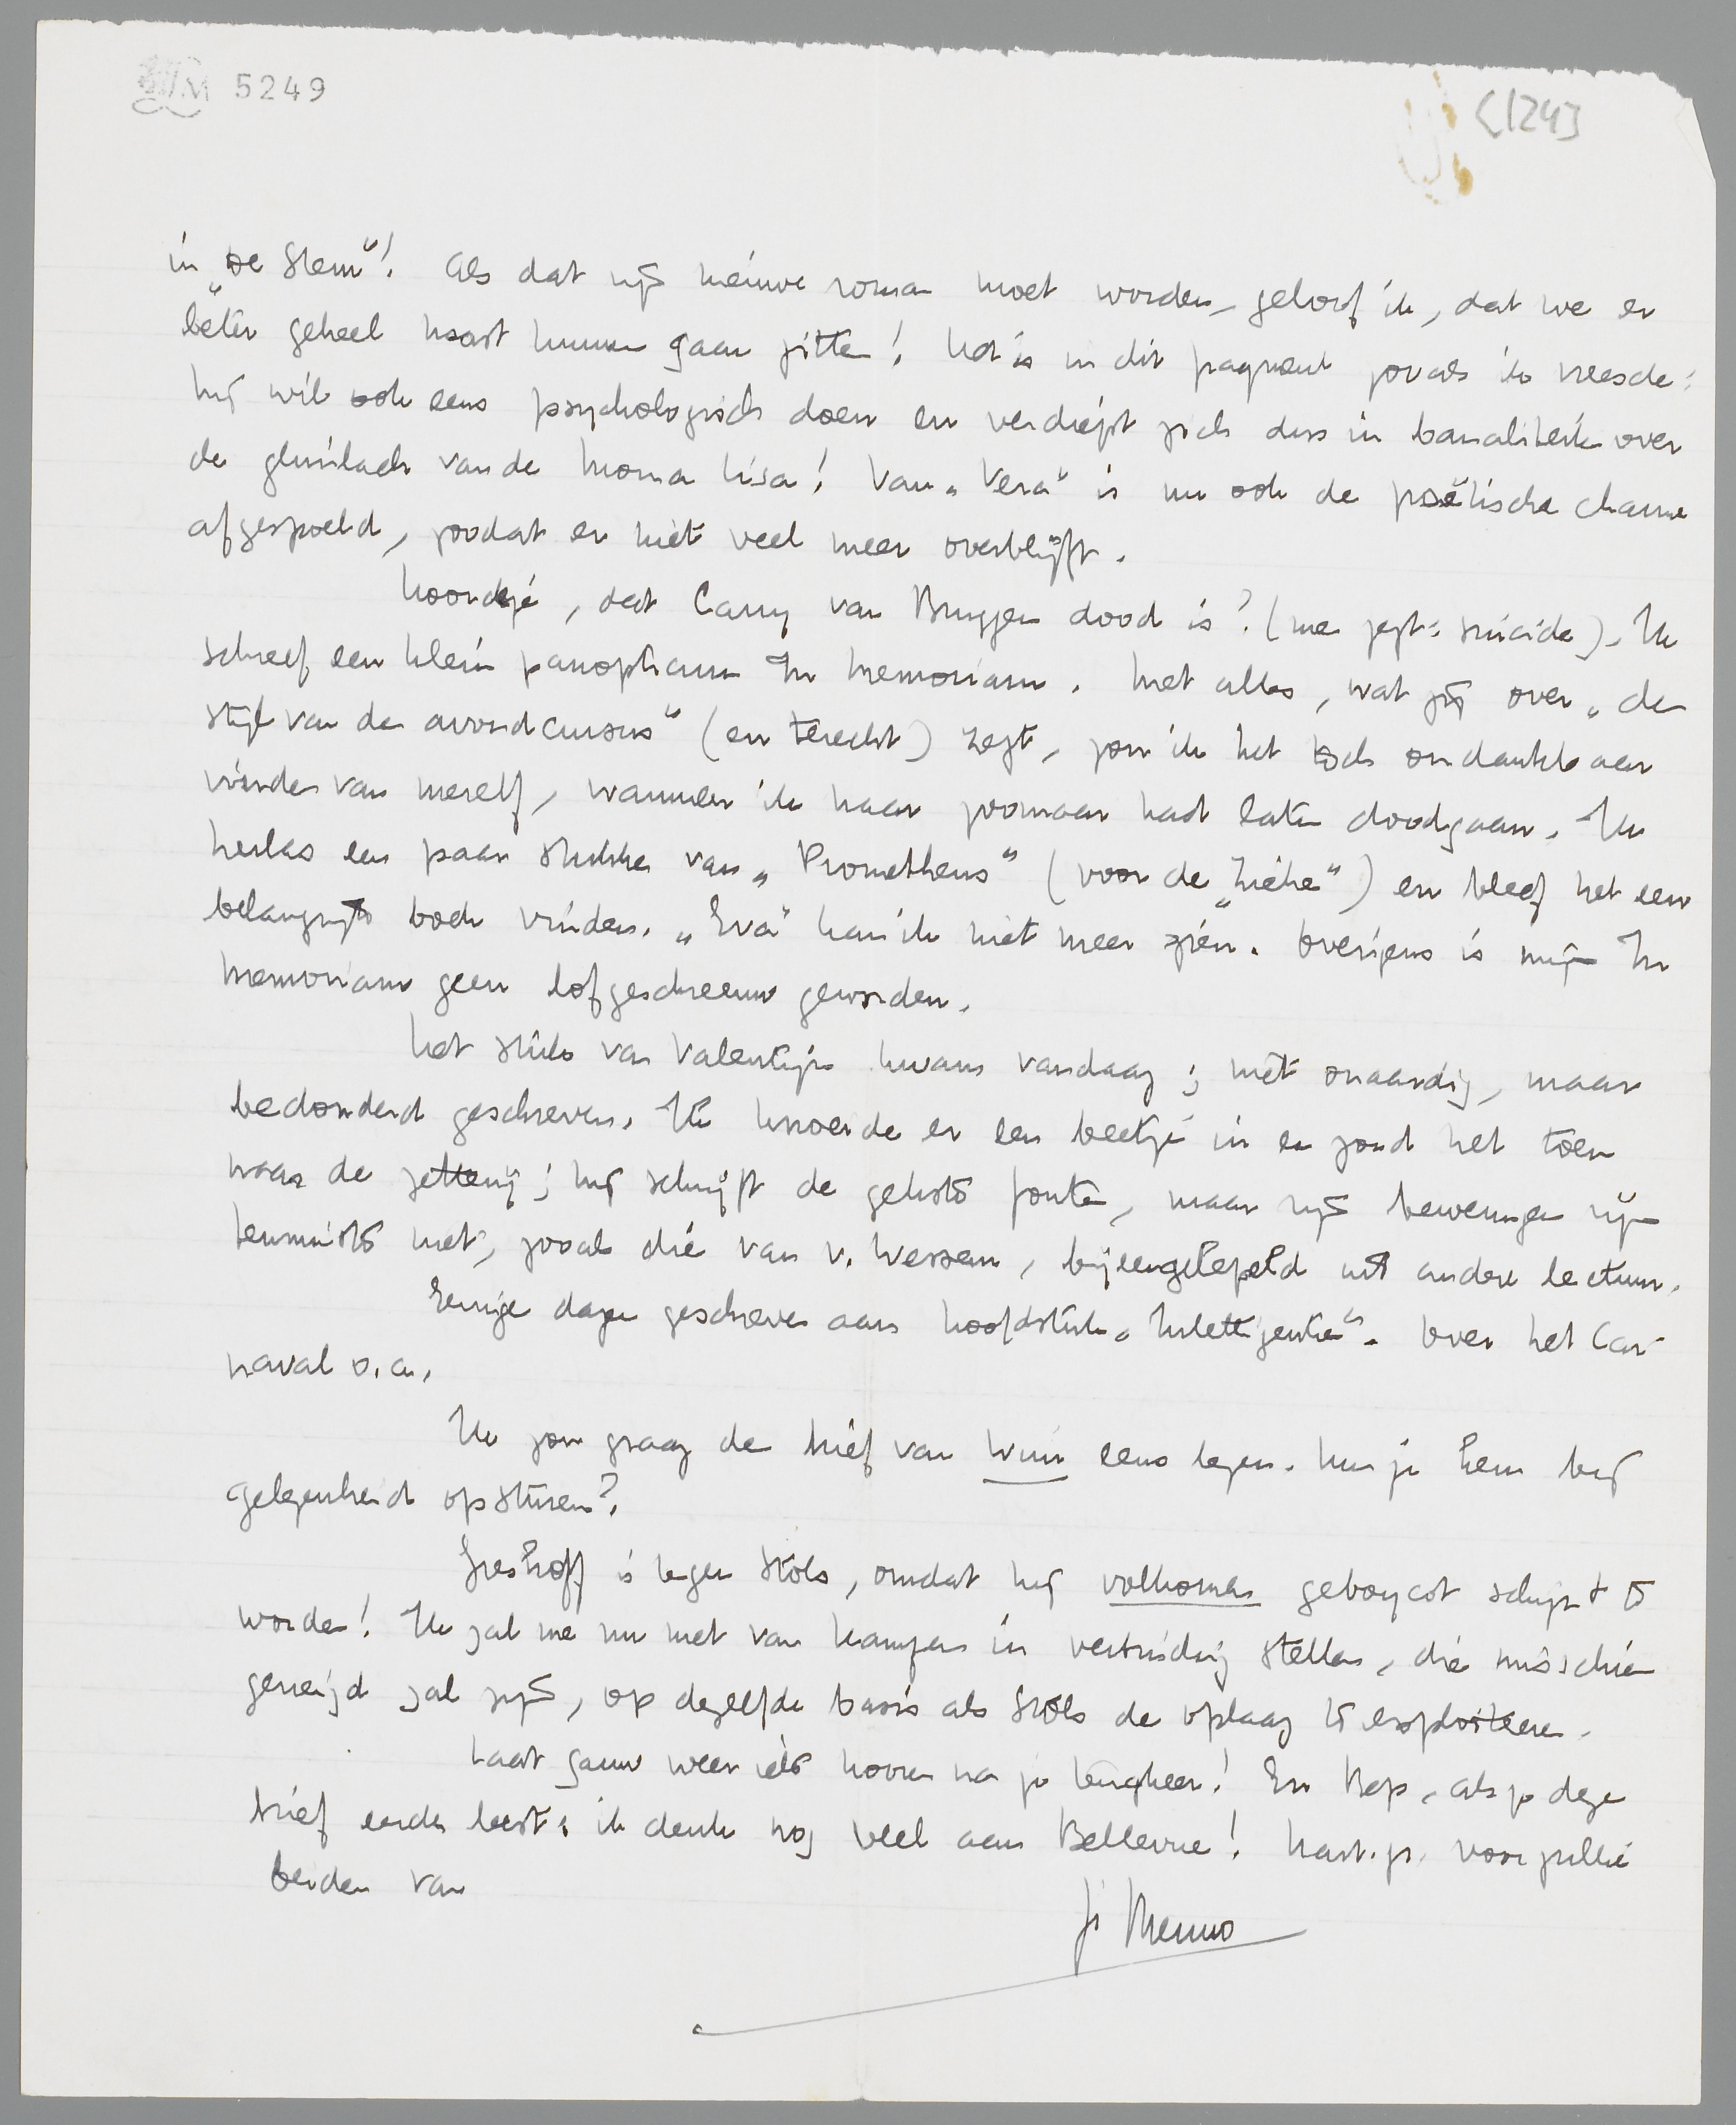 5249
[124]
in „De Stem”! Als dat zijn nieuwe roman moet worden, geloof ik, dat we er
beter geheel naast kunnen gaan zitten! Het is in dit fragment zooals ik vreesde:
hij wil ook eens psychologisch doen en verdiept zich dus in banaliteiten over
de glimlach van de Mona Lisa! Van „Vera” is nu ook de poëtische charme
afgespoeld, zoodat er niet veel meer overblijft.
Hoorde je, dat Carry van Bruggen dood is? (men zegt: suicide). Ik
schreef een klein panopticum In Memoriam. Met alles, wat jij over „de
stijl van de avondcursus” (en terecht) zegt, zou ik het toch ondankbaar
vinden van mezelf, wanneer ik haar zoomaar had laten doodgaan. Ik
herlas een paar stukken van „Prometheus” (voor de „zieke”) en bleef het een
belangrijk boek vinden. „Eva” kan ik niet meer zien. Overigens is mijn In
Memoriam geen lofgeschreeuw geworden.
Het stuk van Valentijn kwam vandaag; niet onaardig, maar
bedonderd geschreven. Ik knoeide er een beetje in en zond het toen
naar de zetterij; hij schrijft de gekste fouten, maar zijn beweringen zijn
tenminste niet, zooals die van v. Wessem, bijeengelepeld uit andere lectuur.
Eenige dagen geschreven aan hoofdstuk „Intelligentie”. Over het Car-
naval o.a.
Ik zou graag de brief van Wim eens lezen. Kun je hem bij
gelegenheid opsturen?
Greshoff is tegen Stols, omdat hij volkomen geboycot schijnt te
worden! Ik zal me nu met van Kampen in verbinding stellen, die misschien
geneigd zal zijn, op dezelfde basis als Stols de oplaag te exploiteeren.
Laat gauw weer iets hooren na je terugkeer! En Bep, als je deze
brief eerder leest: ik denk nog veel aan Bellevue! Hart. gr. voor jullie
beiden van
je Menno